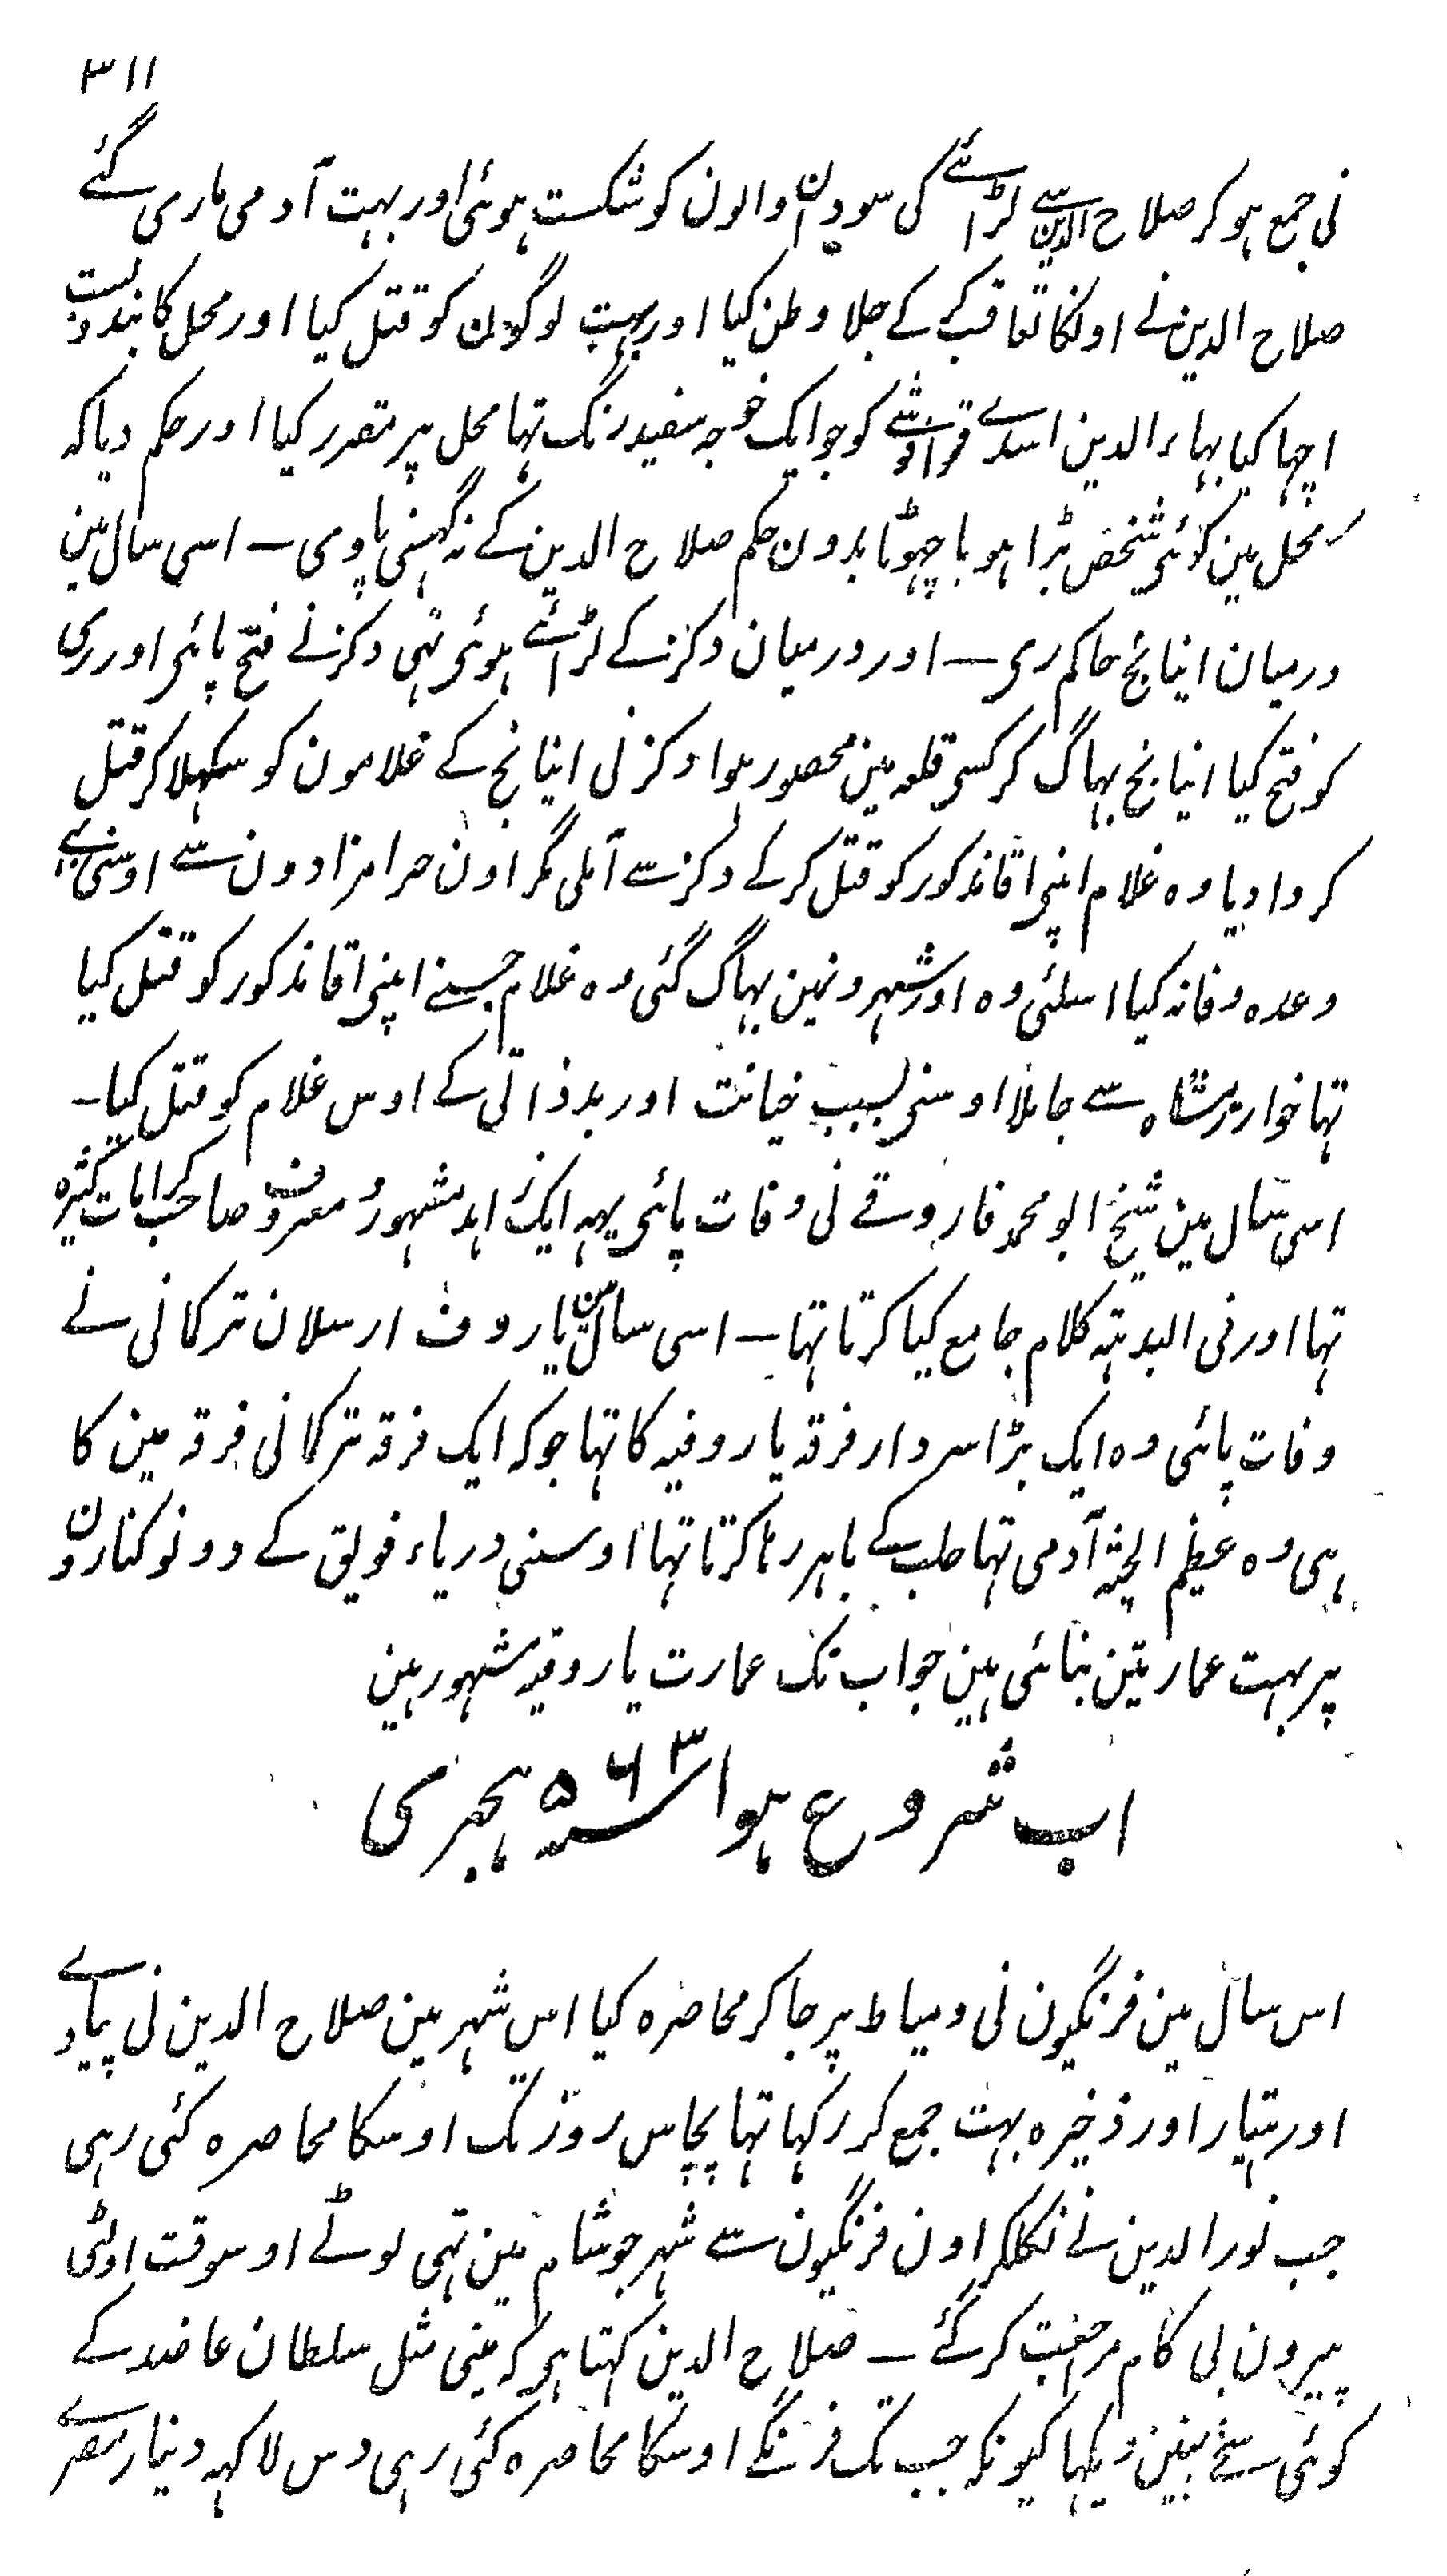 ۳۱۱
نی جمع ہو کر صلاح الدین سے لڑائے کی سودان والون کو شکست ہوئی اور بہت آدمی ماری گئے
صلاح الدین نے اونکا تعاقب کر کے جلا وطن کیا اور بہت لوگون کو قتل کیا اور محل کا بندوبست
اچہا کیا بہاء الدین اسدے قراقوشے کو جو ایک خوجہ سفید رنگ تہا محل پر مقرر کیا اور حکم دیا کہ
محل مین کوئی شخص بڑا ہو یا چہوٹا بدون حکم صلاح الدین کے نہ گہسنی پاوی — اسی سال مین
درمیان اینانج حاکم ری — اور درمیان دکز کے لڑائے ہوئی تہی دکز نے فتح پائی اور ری
کو فتح کیا اینانج بہاگ کر کسی قلعہ مین محصور ہوا دکز نی اینانج کے غلامون کو سکہلا کر قتل
کروا دیا وہ غلام اپنی اقا مذکور کو قتل کر کے دکز سے آملی مگر اون حرامزادون سے اوسنی بہی
وعدہ وفا نہ کیا اسلئی وہ اور شہرونمین بہاگ گئی وہ غلام جسنے اپنی اقا مذکور کو قتل کیا
تہا خوارزمشاہ سے جا ملا اوسنی بسبب خیانت اور بدذاتی کے اوس غلام کو قتل کیا —
اسی سال مین شیخ ابو محمد فاروقے نی وفات پائی یہہ ایک زاہد مشہور و معروف صاحب کرامات کثیرہ
تہا اور فی البدیہہ کلام جامع کیا کرتا تہا — اسی سال مین یاروف ارسلان ترکمانی نے
وفات پائی وہ ایک بڑا سردار فرقہ یاروفیہ کا تہا جو کہ ایک فرقہ ترکمانی فرقہ مین کا
ہی وہ عظیم الجثہ آدمی تہا حلب کے باہر رہا کرتا تہا اوسنی دریاء فویق کے دونو کنارون
پر بہت عمارتین بنائی ہین جو اب تک عمارت یاروقیہ مشہور ہین
اب شروع ہوا سنہ ۵۶۳ ہجری
اس سال مین فرنگیون نی دمیاط پر جا کر محاصرہ کیا اس شہر مین صلاح الدین نی پیادے
اور ہتیار اور ذخیرہ بہت جمع کر رکہا تہا پچاس روز تک اوسکا محاصرہ کئی رہی
جب نور الدین نے نکلکر اون فرنگیون سے شہر جو شام مین تہی لوٹے اوسوقت اولٹی
پیرون بی کام مرجعت کر گئے — صلاح الدین کہتا ہی کہ مینی مثل سلطان عاضد کے
کوئی سخی نہین دیکہا کیونکہ جب تک فرنگے اوسکا محاصرہ کئی رہی دس لاکہہ دینار مصرے